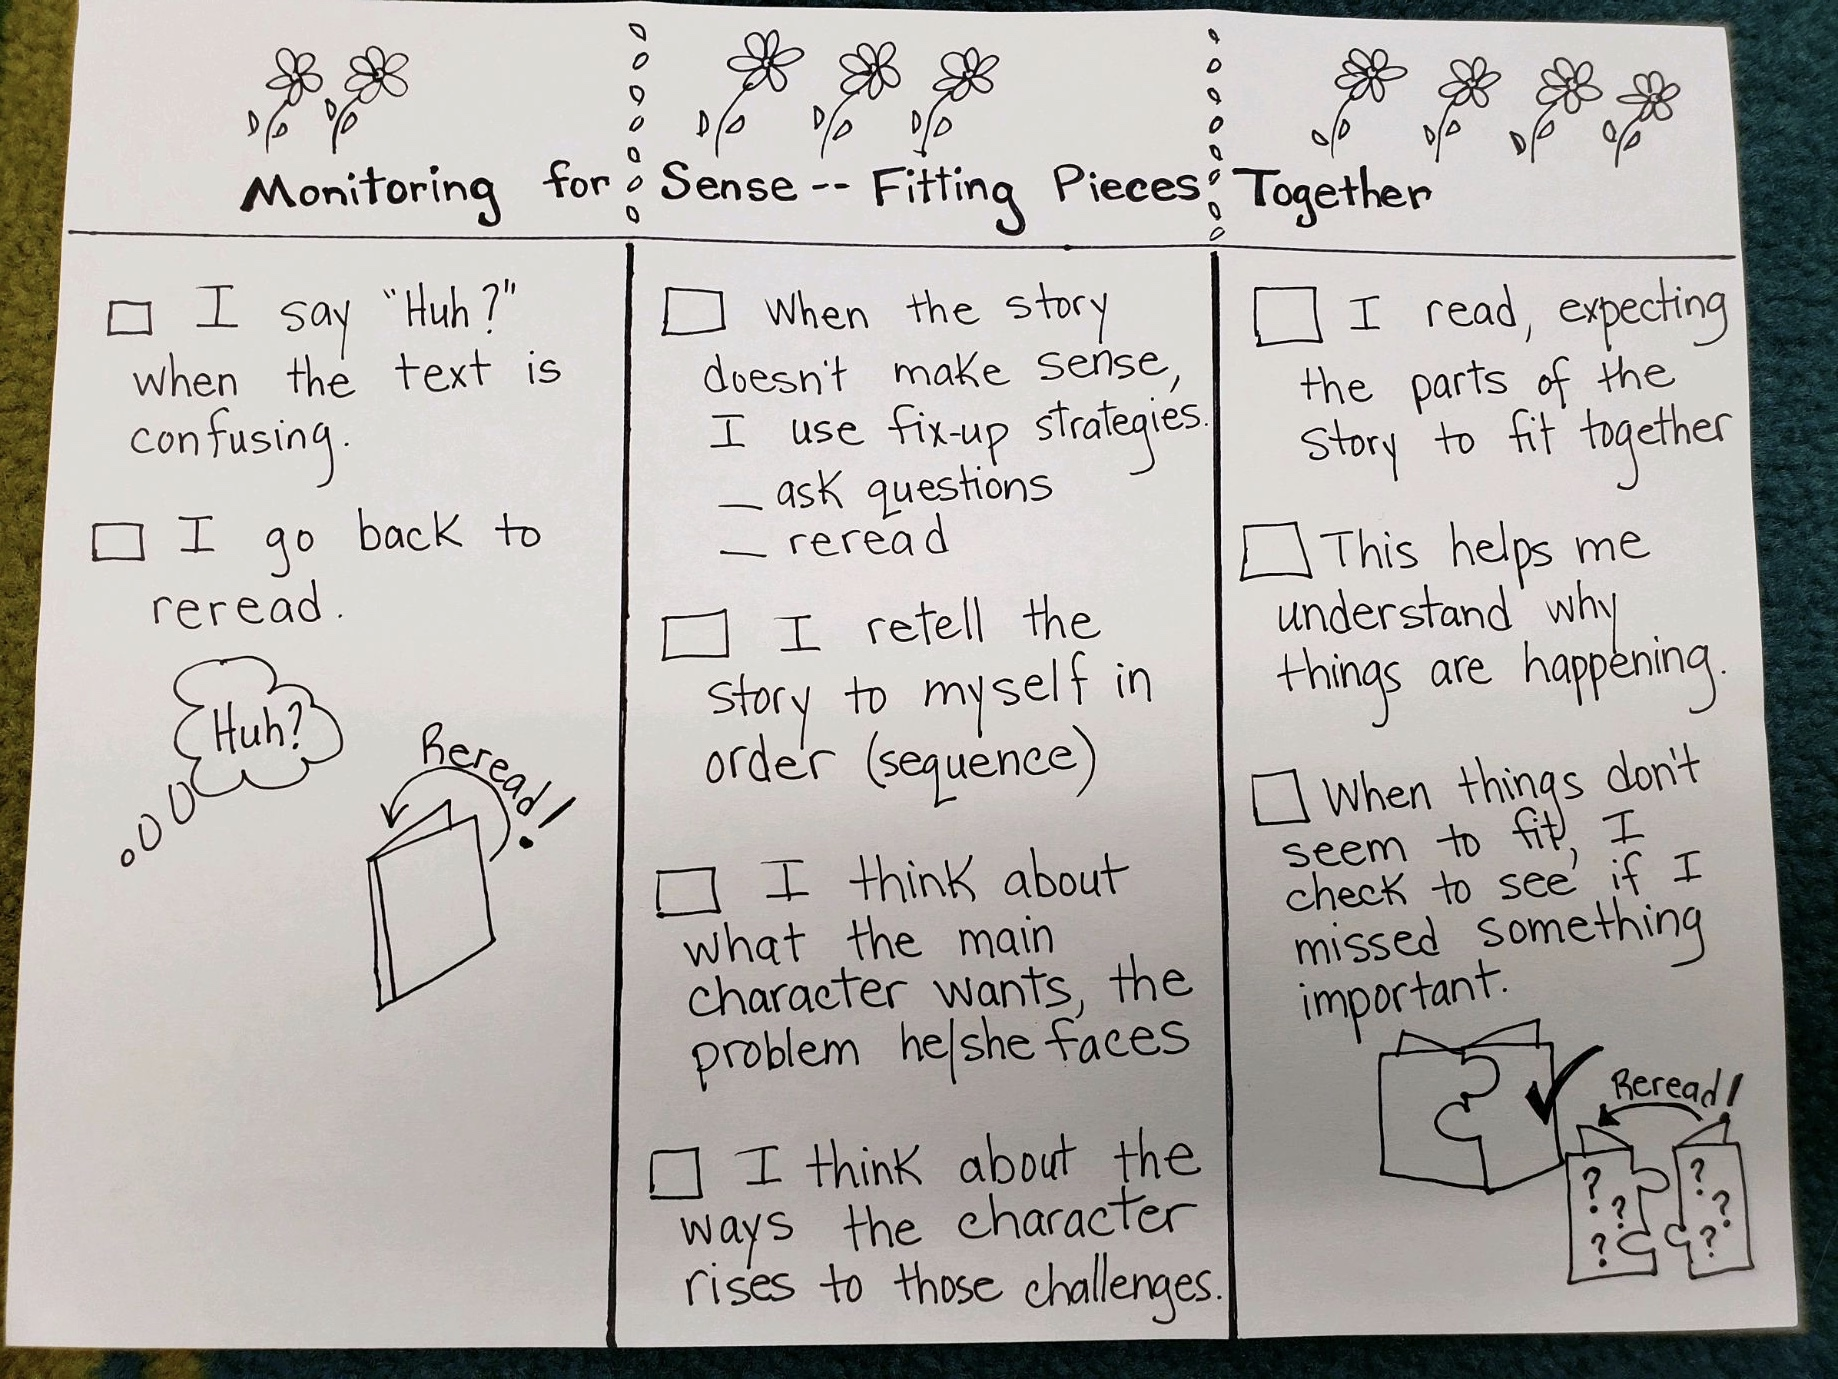 Monitoring for Sense -- Fitting Pieces Together
I say "Huh?"
when the text is
confusing.
I go back to
reread.
Huh?
Reread!
When the story
doesn't make sense,
I use fix-up strategies.
_ ask questions
_ reread
I retell the
story to myself in
order (sequence)
I think about
what the main
character wants, the
problem he/she faces
I think about the
ways the character
rises to those challenges.
I read, expecting
the parts of the
story to fit together
This helps me
understand why
things are happening.
When things don't
seem to fit, I
check to see if I
missed something
important.
Reread!
? ?
? ?
? ?